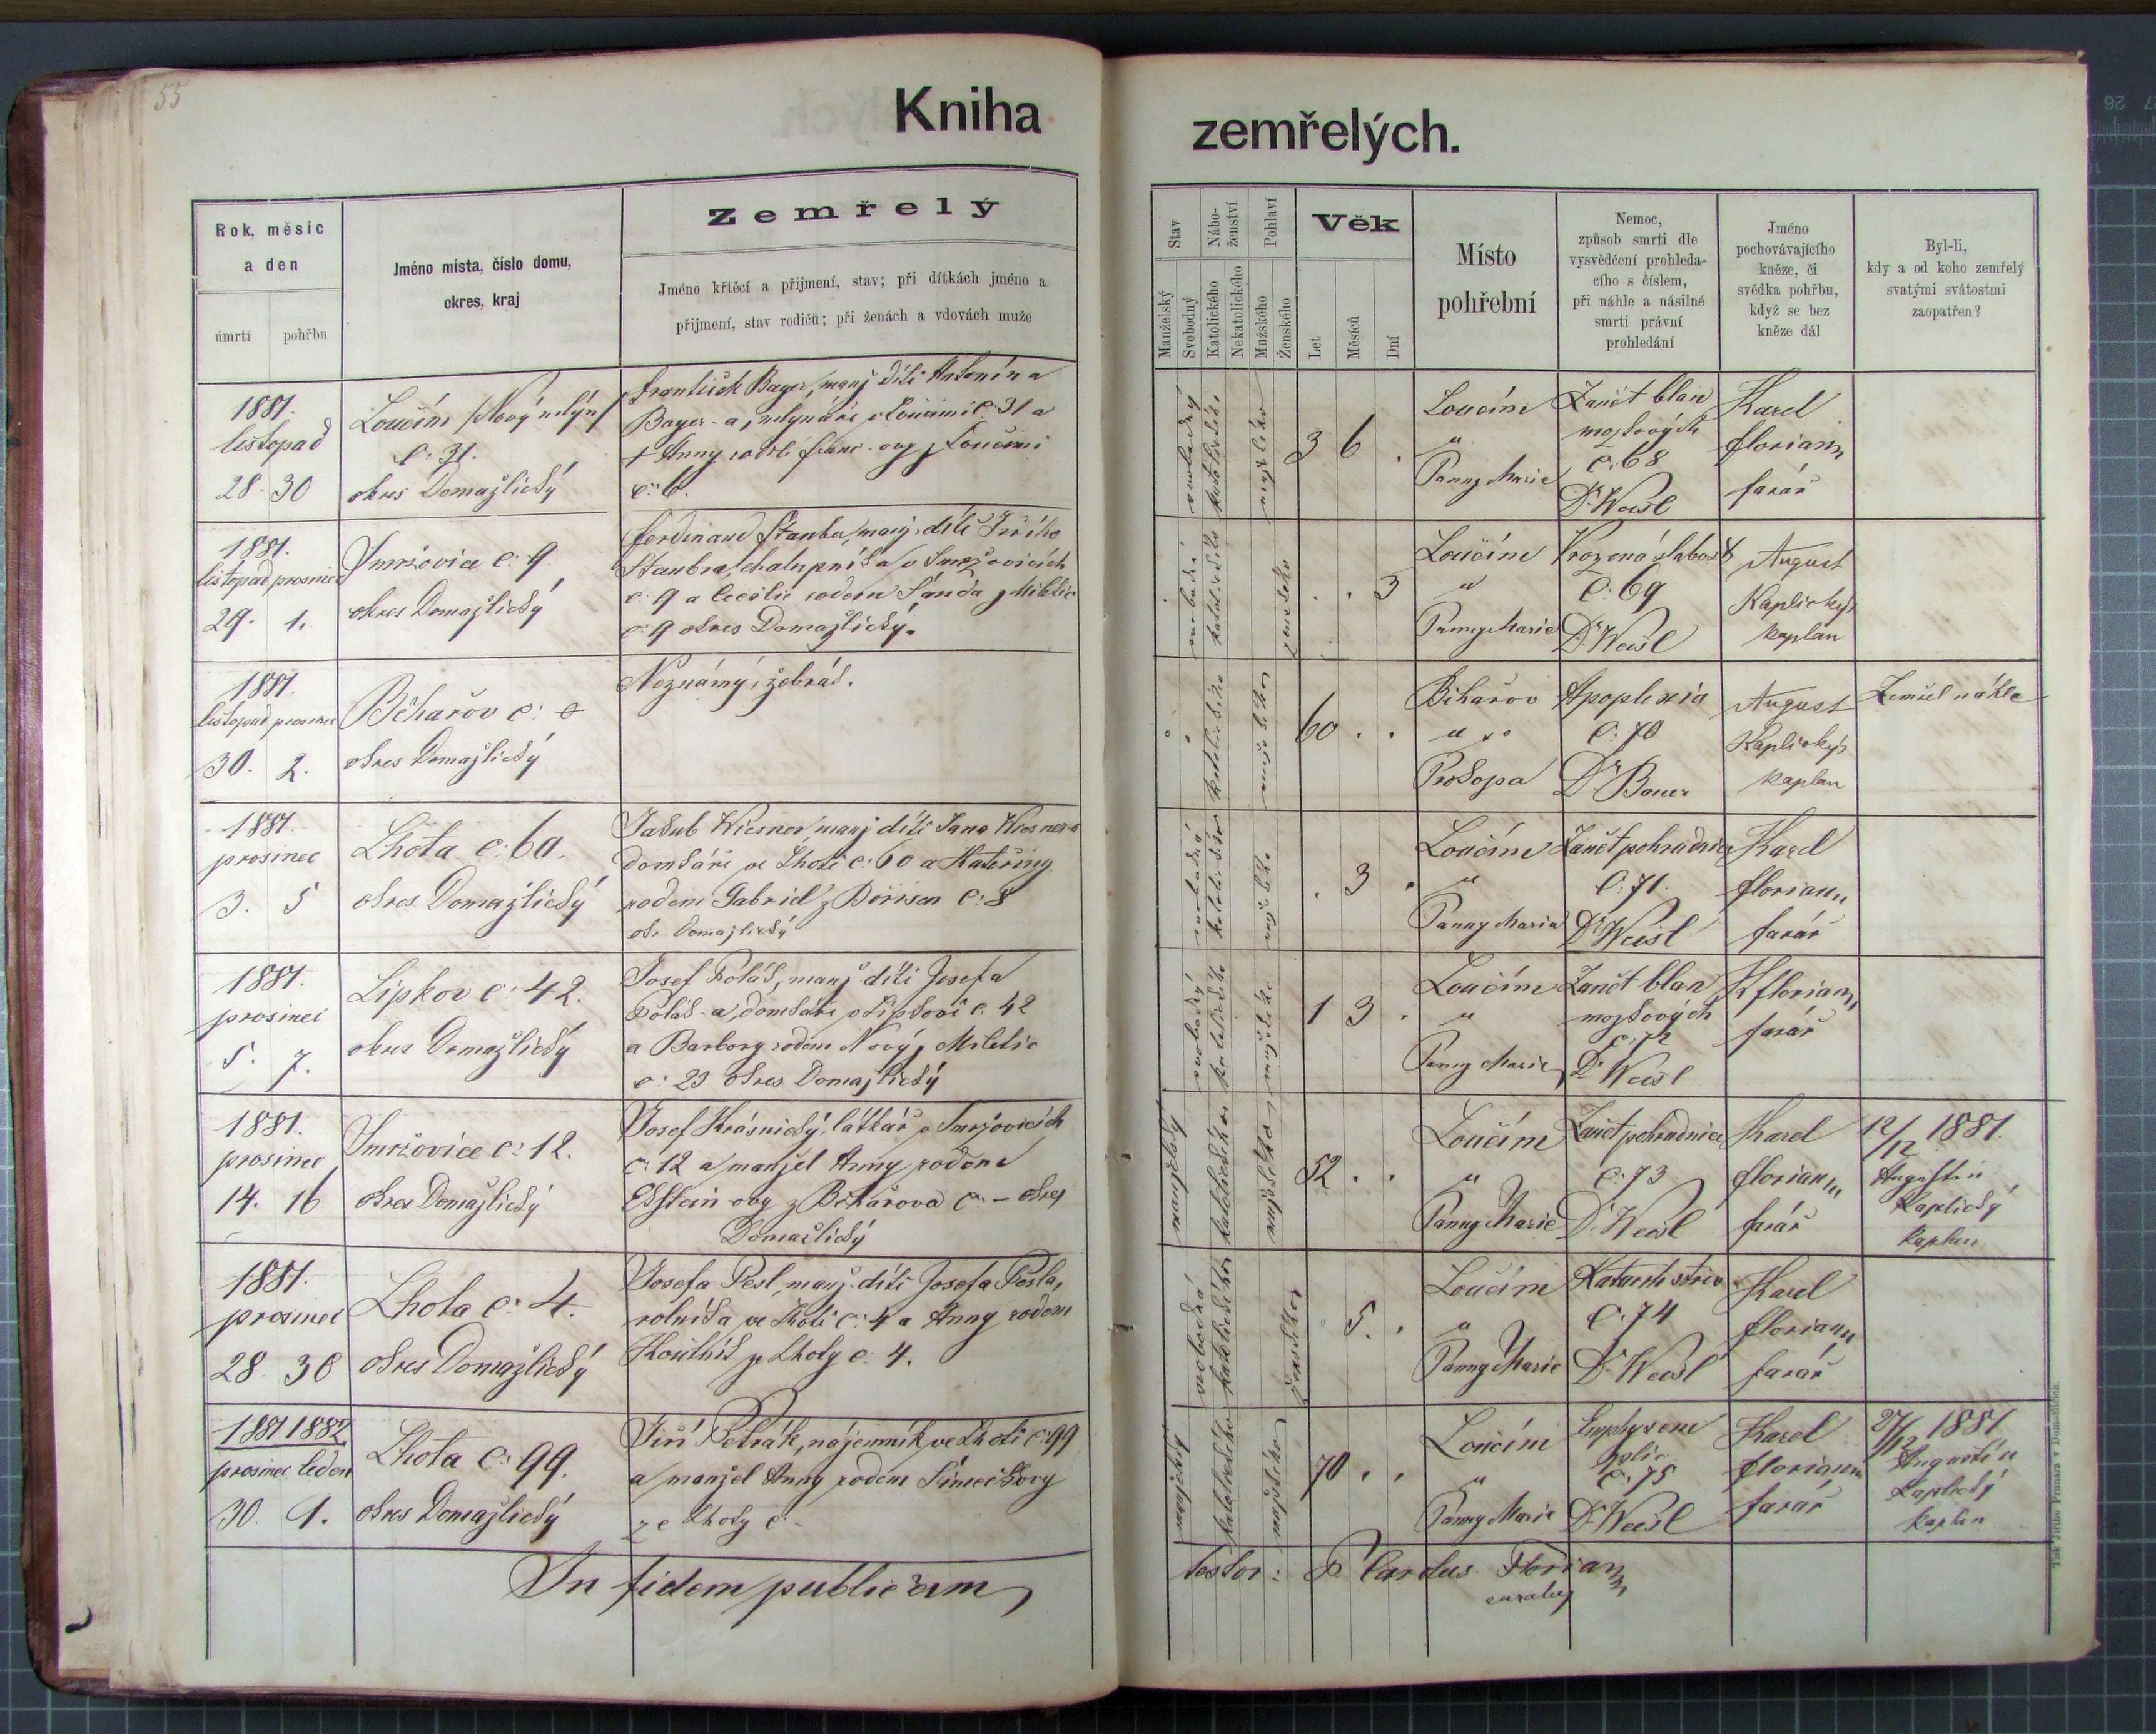 55
Kniha zemřelých.
Rok, měsíc
a den
úmrtí pohřbu
Jméno místa, číslo domu,
okres, kraj
Zemřelý
Jméno křtěcí a přijmení, stav; při dítkách jméno a
přijmení, stav rodičů; při ženách a vdovách muže
Stav
Manželský
Svobodný
Nábo-
ženství
Katolického
Nekatolického
Pohlaví
Mužského
Ženského
Věk
Let
Měsíců
Dní
Místo
pohřební
Nemoc,
způsob smrti dle
vysvědčení prohleda-
cího s číslem,
při náhle a násilné
smrti právní
prohledání
Jméno
pochovávajícího
kněze, či
svědka pohřbu,
když se bez
kněze dál
Byl-li,
kdy a od koho zemřelý
svatými svátostmi
zaopatřen?
1881.
listopad
28. 30
Loučim /Nový mlýn/
č. 31.
okres Domažlický
František Bayer, manž dítě Antonína
Bayer-a, mlynáře v Loučimi č. 31 a
č. 6.
svobodný
katolického
mužského
3 6 .
Loučim
"
Panny Marie
Zánět blan
mozkových
č. 68
Dr Weisl
Karel
Floriann
farář
1881.
listopad prosinec
29. 1.
Smržovice č. 9
okres Domažlický
Ferdinand Stauber, manž. dítě Jiřího
Staubra, chalupníka v Smržovicích
č. 9 a Cecilie rodem Šanda z Miletic
č. 9 okres Domažlický.
katolického
ženského
. . 3
Loučim
"
Panny Marie
Vrozená slabost
č. 69
Dr Weisl
August
Kaplický
kaplan
1881.
listopad prosinec
30. 2.
Běhařov č.
okres Domažlický
Neznámý, žebrák.
katolického
mužského
60 . .
Běhařov
Prokopa
Apoplexia
č. 70
Dr Bauer
August
Kaplický
kaplan
Zemřel náhle
1881.
prosinec
3. 5
Lhota č. 60.
okres Domažlický
Jakub Wiesner, manž dítě Jana Wiesner-a
domkáře ve Lhotě č. 60 a Kateřiny
rodem Gabriel z č. 8
ok. Domažlický
katolického
mužského
. 3 .
Loučim
"
Panny Maria
Zánět pohrudnice
č. 71.
Dr Weisl
Karel
Floriann
farář
1881.
prosinec
5. 7.
Lipkov č. 42.
okres Domažlický
Josef Polák, manž dítě Josefa
Polák-a, domkáře v Lipkově č. 42
a Barbory rodem Nový z Miletic
č. 23 okres Domažlický
svobodný
katolického
mužského
1 3 .
Loučim
"
Panny Marie
Zánět blan
mozkových
č. 72
Dr Weisl
K Floriann
farář
1881.
prosinec
14. 16
Smržovice č. 12.
okres Domažlický
Josef Krásnický, látkář v Smržovicích
č. 12 a manžel Anny rodem
Ekstein-ovy z Běhařova č. – okres
Domažlický
manželský
katolického
mužského
52 . .
Loučim
"
Panny Marie
Zánět pohrudnice
č. 73
Dr Weisl
Karel
Floriann
farář
12/12 1881.
Augustin
Kaplický
kaplan
1881.
prosinec
28 30
Lhota č. 4.
okres Domažlický
Josefa Pesl, manž. dítě Josefa Pesla,
rolníka ve Lhotě č. 4 a Anny rodem
ze Lhoty č. 4.
svobodná
katolického
ženského
5. .
Loučim
"
Panny Marie
Katarrh střev
č. 74
Dr Weisl
Karel
Floriann
farář
1881 1882
prosinec leden
30. 1.
Lhota č. 99.
okres Domažlický
Jiří Petrák, nájemník ve Lhotě č. 99
a manžel Anny rodem Šimečkovy
ze Lhoty č –
katolického
mužského
70 . .
Loučim
"
Panny Marie
Emphysem
plic
č. 75
Dr Weisl
Karel
Floriann
farář
27/12 1881
Augustin
Kaplický
kaplan
In fidem publicam
testor: P Carolus Floriann
curatus
Tisk Jiřího Prunara v Domažlicích.